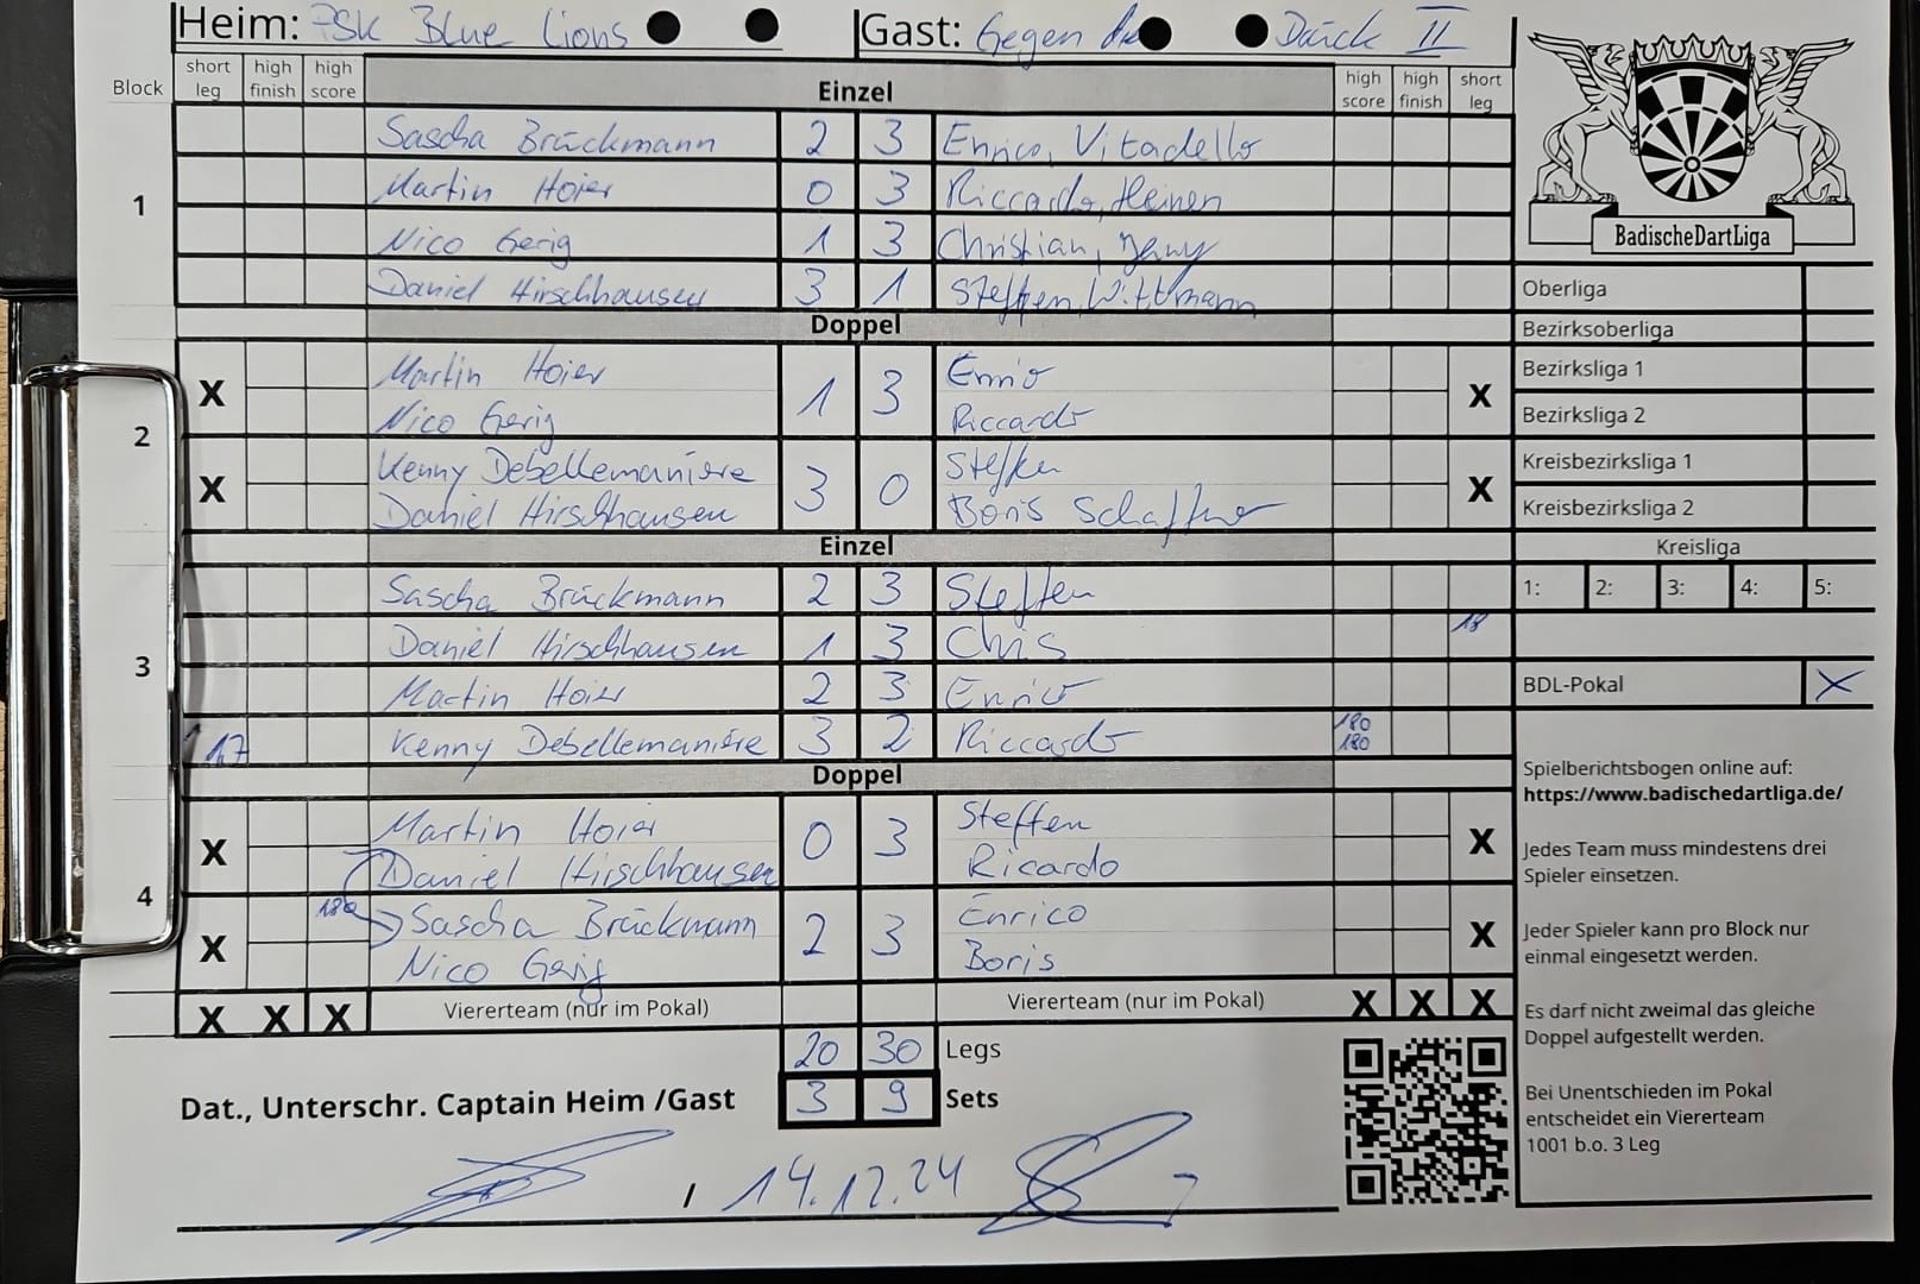 Heim: PSK Blue Lions Gast: Gegen Dück II
Block short leg high finish high score Einzel high score high finish short leg
1
Sascha Brückmann 2 3 Enrico, Vitadello
Martin Hoier 0 3 Riccardo, Heinen
Nico Gerig 1 3 Christian,
Daniel Hirschhausen 3 1 Steffen, Wittmann
Doppel
2
X Martin Hoier 1 3 Enrico X
Nico Gerig Riccardo
X Kenny Debellemanière 3 0 Steffen X
Daniel Hirschhausen Boris Schaffner
Einzel
3
Sascha Brückmann 2 3 Steffen
Daniel Hirschhausen 1 3 Chris 18
Martin Hoier 2 3 Enrico
17 Kenny Debellemanière 3 2 Riccardo 180
180
Doppel
4
X Martin Hoier 0 3 Steffen X
Daniel Hirschhausen Ricardo
X 180 Sascha Brückmann 2 3 Enrico X
Nico Gerig Boris
X X X Viererteam (nur im Pokal) Viererteam (nur im Pokal) X X X
20 30 Legs
Dat., Unterschr. Captain Heim /Gast 3 9 Sets
/ 14.12.24
BadischeDartLiga
Oberliga
Bezirksoberliga
Bezirksliga 1
Bezirksliga 2
Kreisbezirksliga 1
Kreisbezirksliga 2
Kreisliga
1: 2: 3: 4: 5:
BDL-Pokal X
Spielberichtsbogen online auf:
https://www.badischedartliga.de/
Jedes Team muss mindestens drei
Spieler einsetzen.
Jeder Spieler kann pro Block nur
einmal eingesetzt werden.
Es darf nicht zweimal das gleiche
Doppel aufgestellt werden.
Bei Unentschieden im Pokal
entscheidet ein Viererteam
1001 b.o. 3 Leg